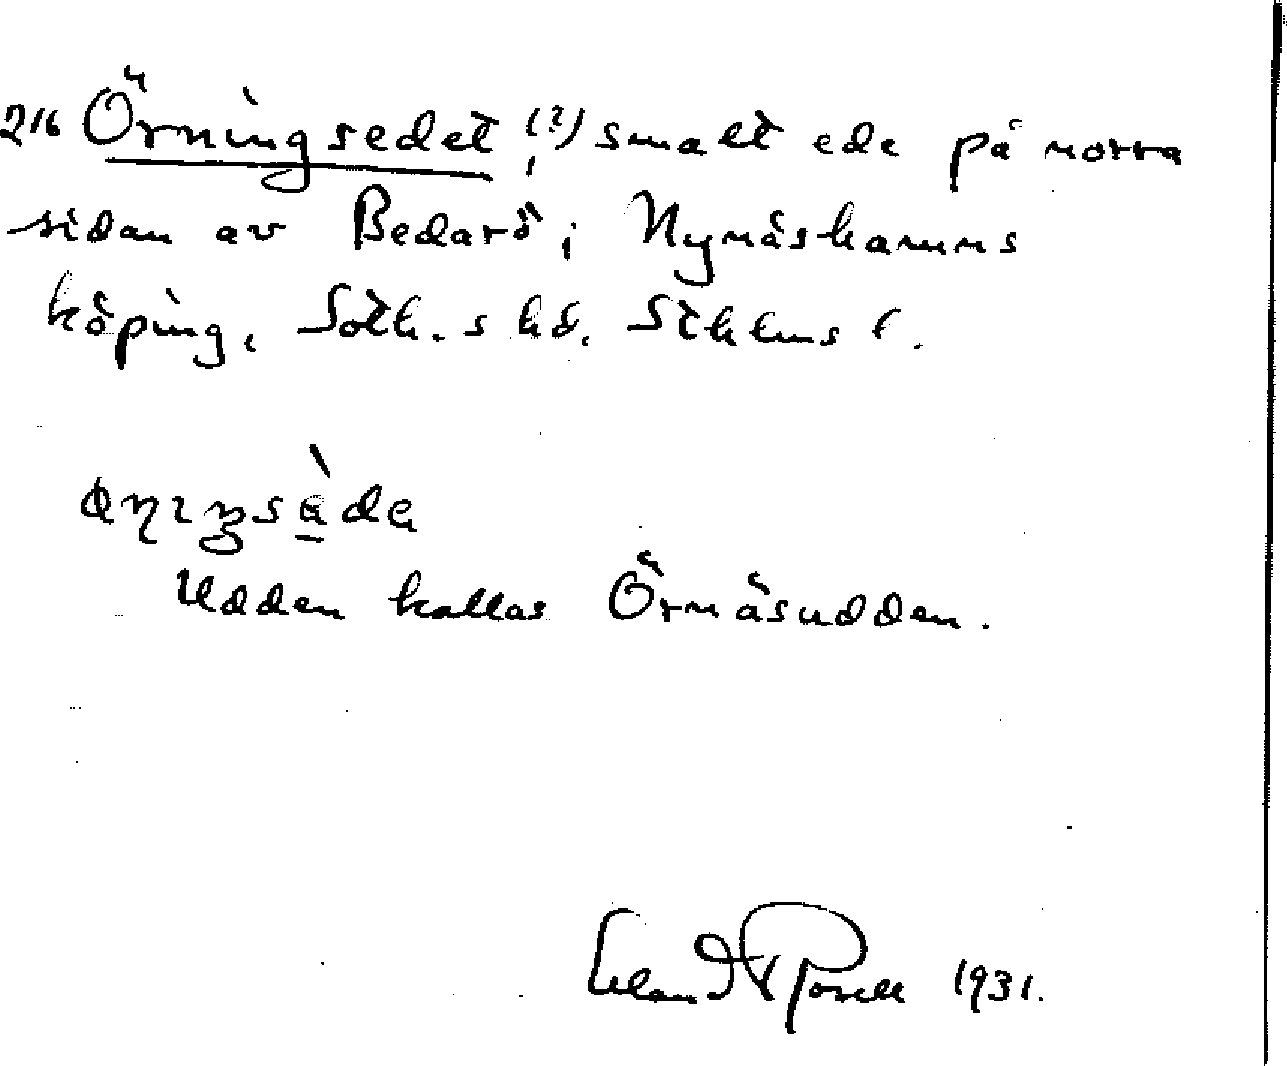 216 Örningsedet (?), smalt ede på norra
sidan av Bedarö, Nynäshamns
köping, Soth. s hd. Sthlms l.
Udden kallas Örnäsudden.
1931.